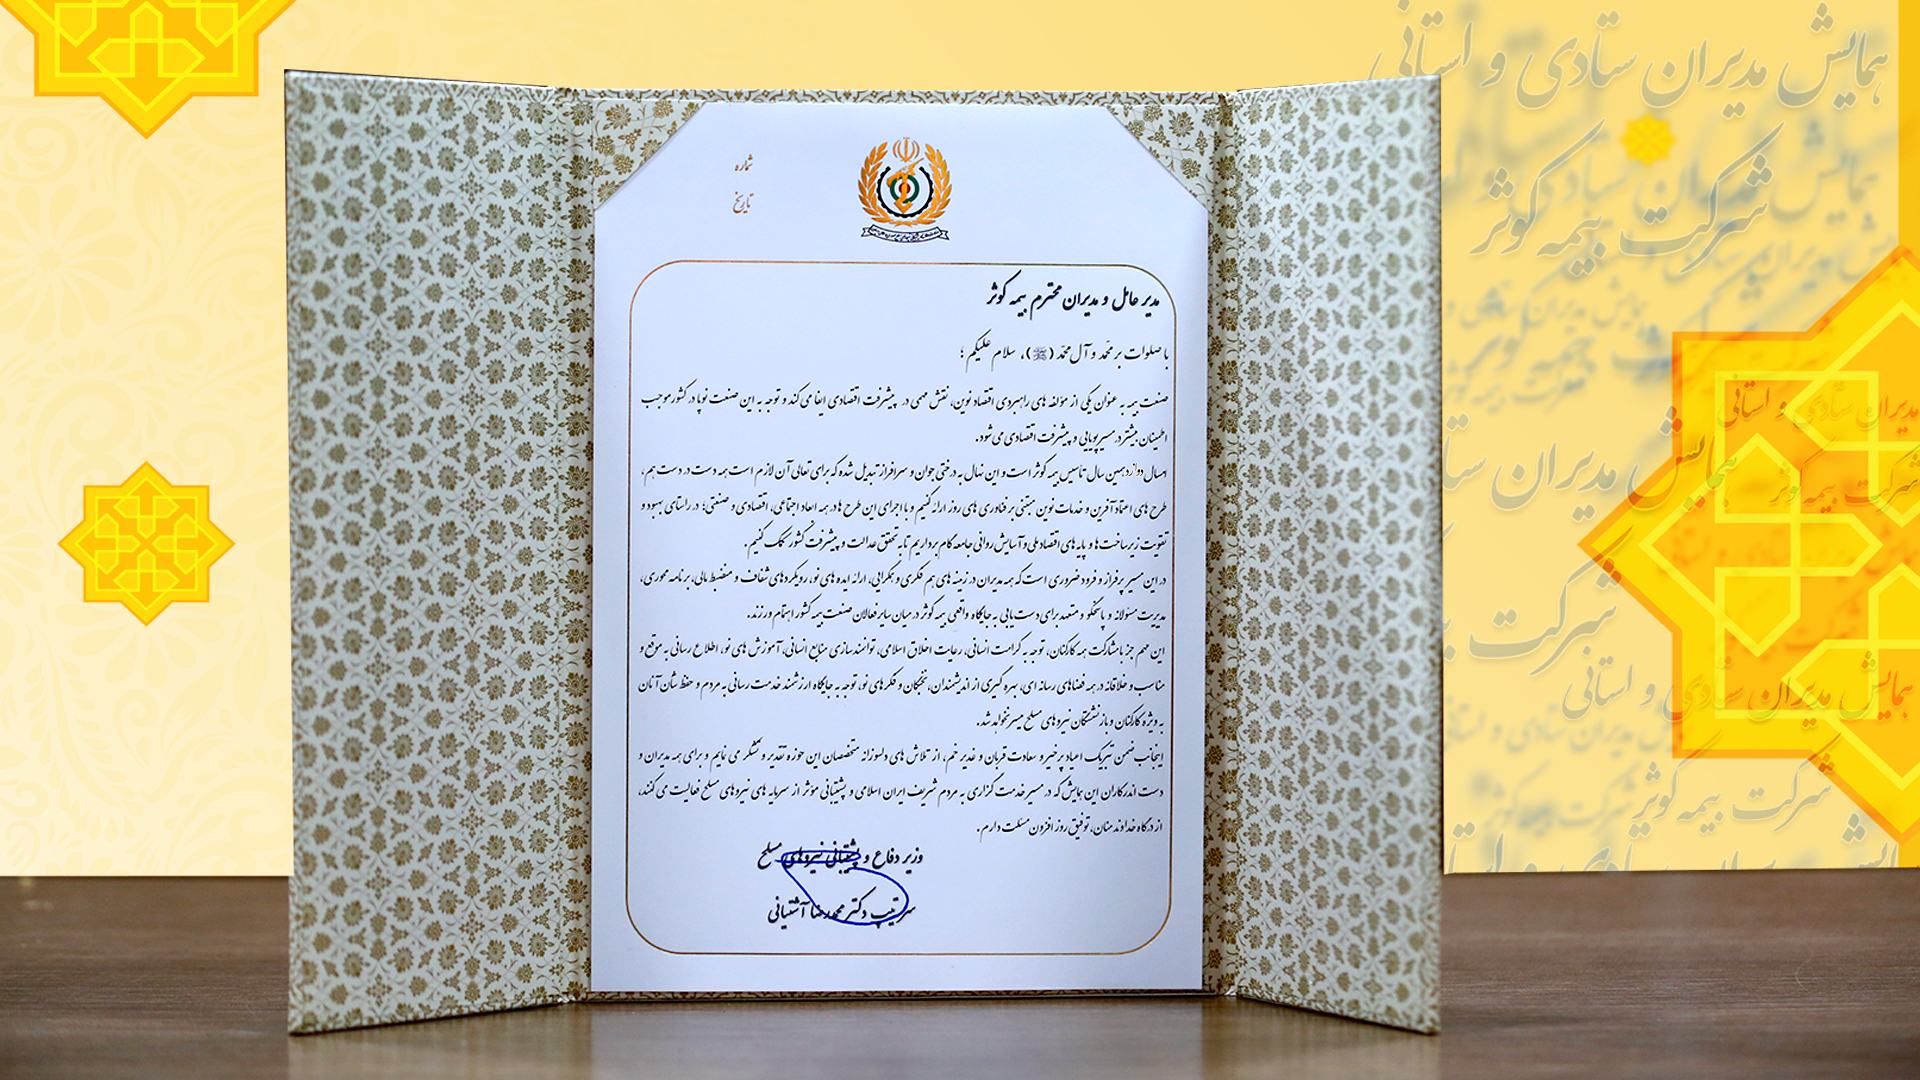 شماره
تاریخ
مدیر عامل و مدیران محترم بیمه کوثر
با صلوات بر محمّد و آل محمّد (ﷺ)، سلام علیکم ؛
صنعت بیمه به عنوان یکی از مؤلفه های راهبردی اقتصاد نوین، نقش مهمی در پیشرفت اقتصادی ایفا می کند و توجه به این صنعت نوپا در کشور موجب
اطمینان بیشتر در مسیر پویایی و پیشرفت اقتصادی می شود.
امسال دوازدهمین سال تاسیس بیمه کوثر است و این نهال به درختی جوان و سرافراز تبدیل شده که برای تعالی آن لازم است همه دست در دست هم،
طرح های اعتماد آفرین و خدمات نوین مبتنی بر فناوری های روز ارائه کنیم و با اجرای این طرح ها در همه ابعاد اجتماعی، اقتصادی و صنعتی؛ در راستای بهبود و
تقویت زیرساخت ها و پایه های اقتصاد ملی و آسایش روانی جامعه گام برداریم تا به تحقق عدالت و پیشرفت کشور کمک کنیم.
در این مسیر پرفراز و فرود ضروری است که همه مدیران در زمینه های هم فکری و همگرایی، ارائه ایده های نو، رویکردهای شفاف و منضبط مالی، برنامه محوری،
مدیریت مسئولانه و پاسخگو و متعهد برای دست یابی به جایگاه واقعی بیمه کوثر در میان سایر فعالان صنعت بیمه کشور اهتمام ورزند.
این مهم جز با مشارکت همه کارکنان، توجه به کرامت انسانی، رعایت اخلاق اسلامی، توانمندسازی منابع انسانی، آموزش های نو، اطلاع رسانی به موقع و
مناسب و خلاقانه در همه فضاهای رسانه ای، بهره گیری از اندیشمندان، نخبگان و فکرهای نو، توجه به جایگاه ارزشمند خدمت رسانی به مردم و حفظ شأن آنان
به ویژه کارکنان و بازنشستگان نیروهای مسلح میسر نخواهد شد.
اینجانب ضمن تبریک اعیاد پرخیر و سعادت قربان و غدیر خم، از تلاش های دلسوزانه متخصصان این حوزه تقدیر و تشکر می نمایم و برای همه مدیران و
دست اندرکاران این همایش که در مسیر خدمت گزاری به مردم شریف ایران اسلامی و پشتیبانی مؤثر از سرمایه های نیروهای مسلح فعالیت می کنند،
از درگاه خداوند منان، توفیق روز افزون مسئلت دارم.
وزیر دفاع و پشتیبانی نیروهای مسلح
سرتیپ دکتر محمدرضا آشتیانی
همایش مدیران ستادی و استانی
شرکت بیمه کوثر
همایش مدیران ستادی و استانی
شرکت بیمه کوثر
مدیران ستادی و استانی
شرکت بیمه کوثر
همایش مدیران ستادی و استانی
شرکت بیمه کوثر